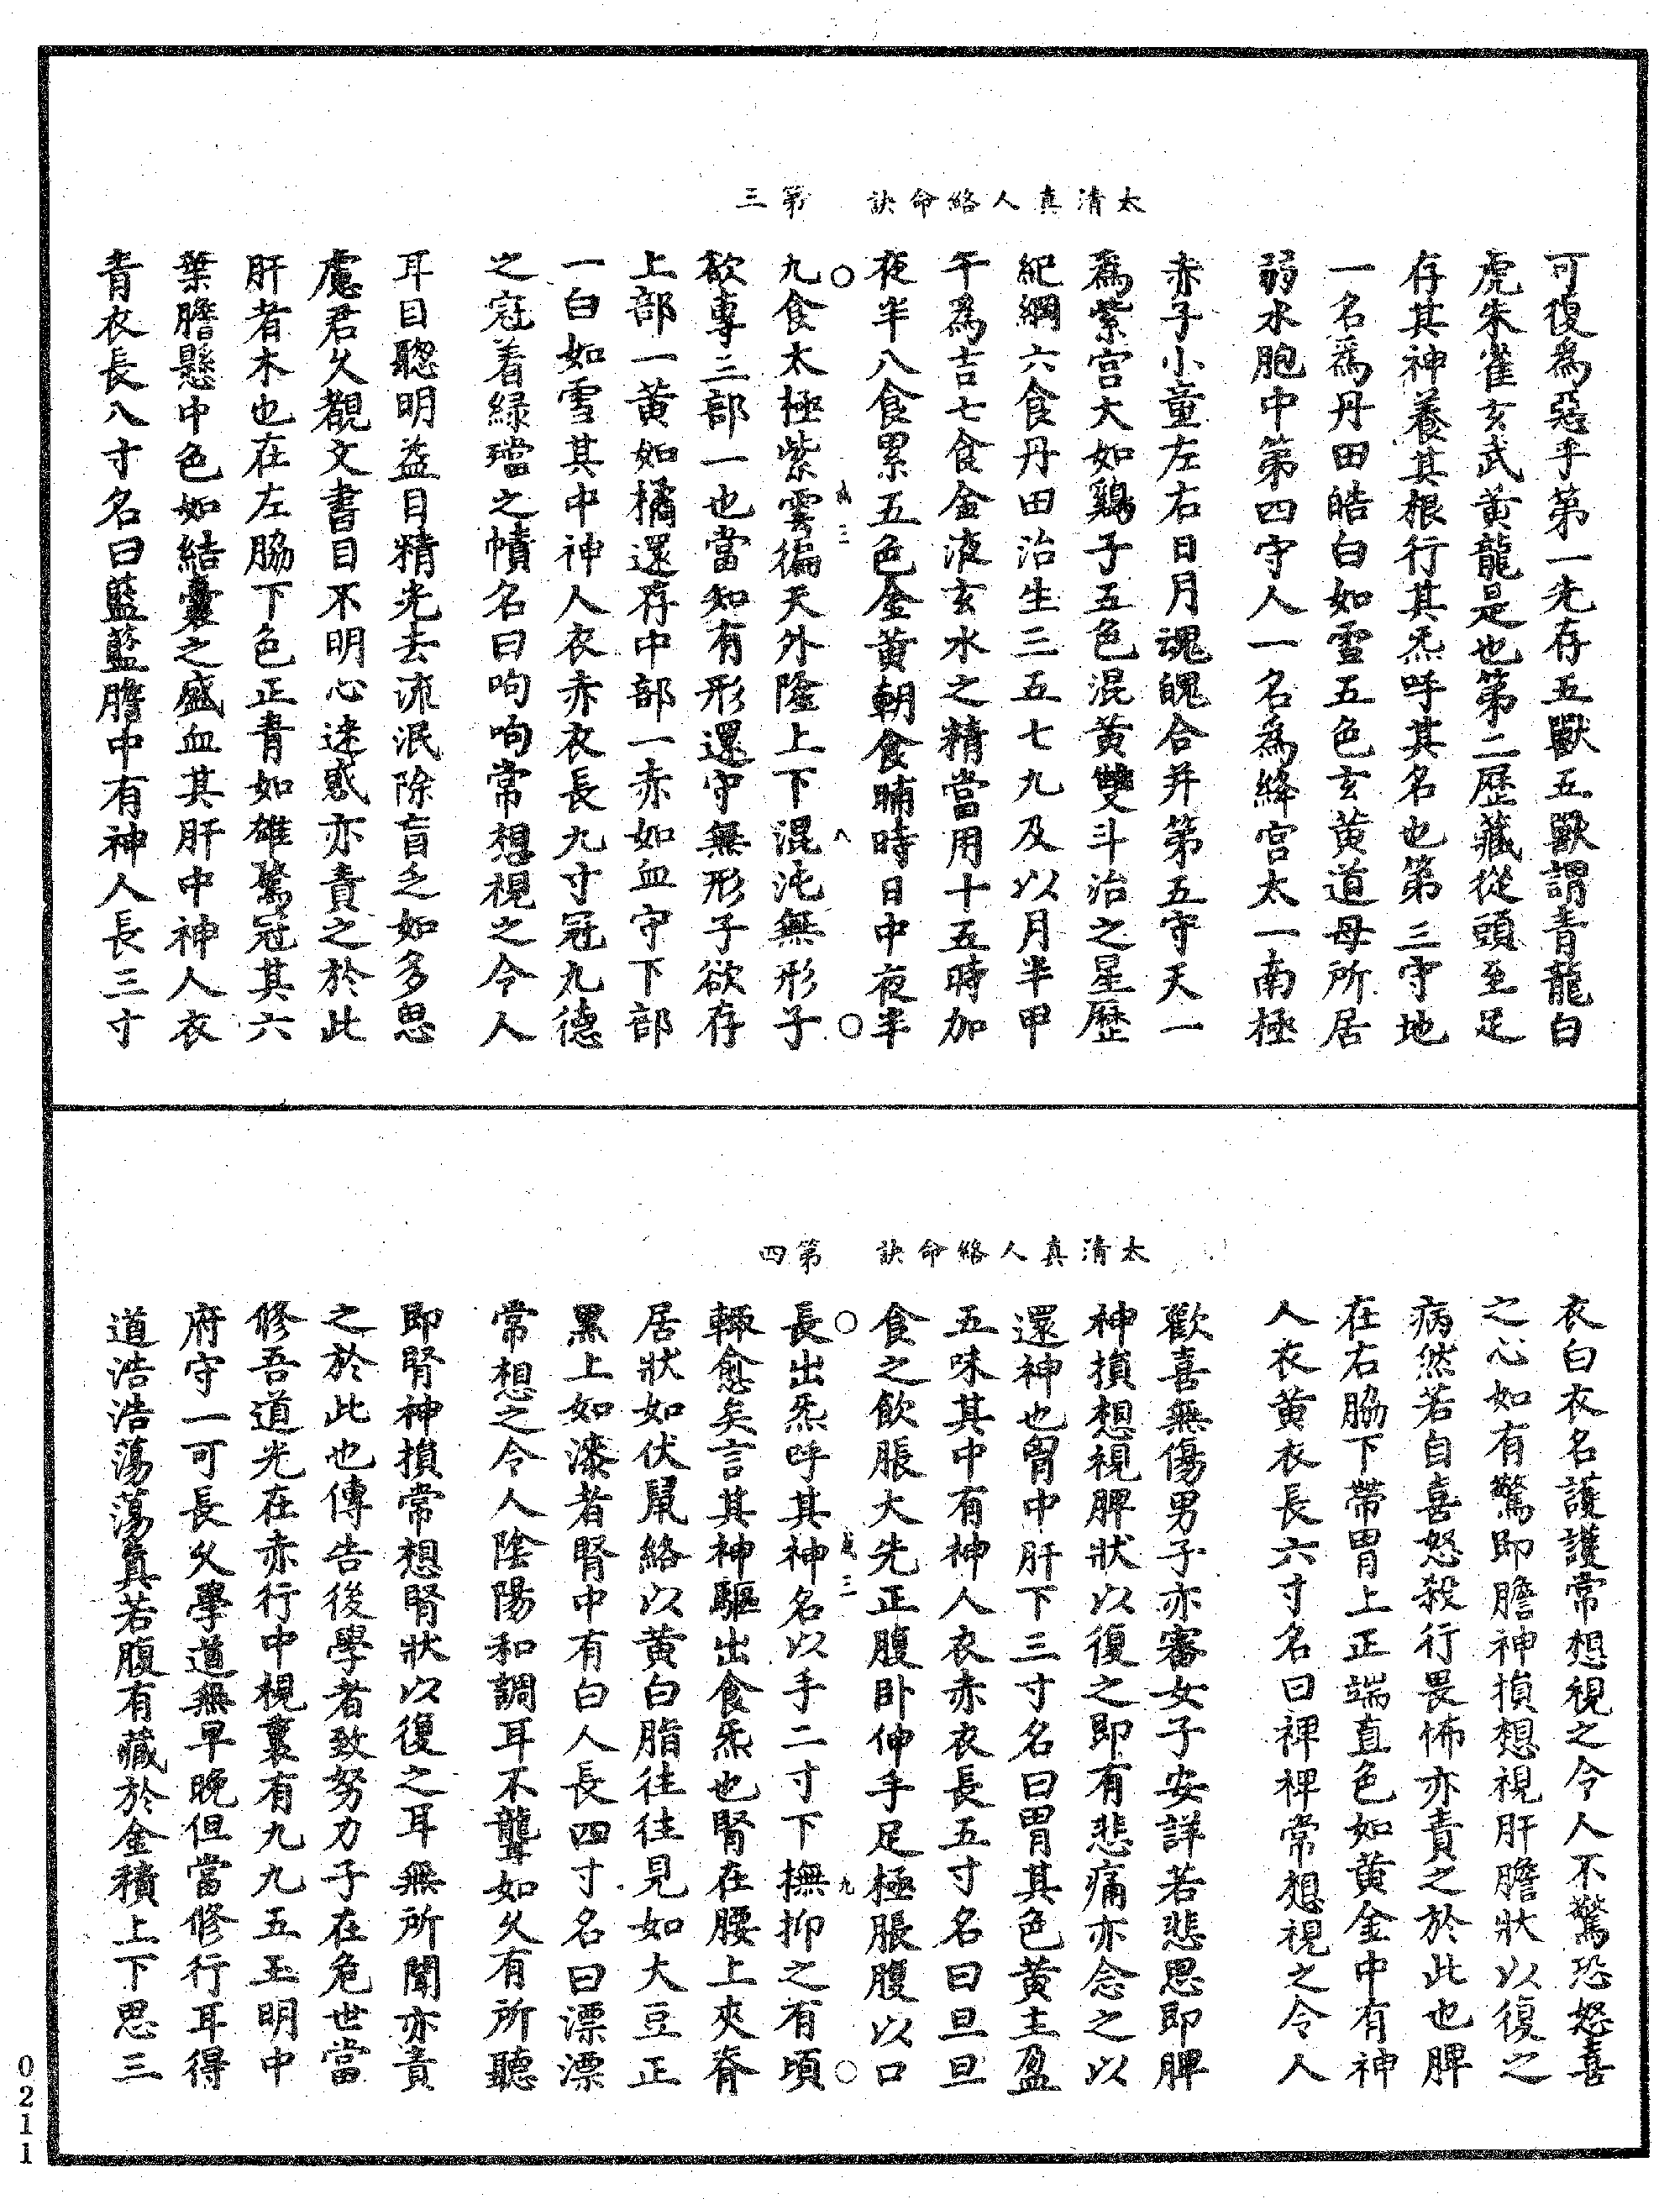 太清真人絡命訣　第三
可復爲惡乎第一先存五獸五獸謂青龍白
虎朱雀玄武黃龍是也第二歷藏從頭至足
存其神養其根行其炁呼其名也第三守地
一名爲丹田皓白如雪五色玄黃道母所居
弱水胞中第四守人一名爲絳宮太一南極
赤子小童左右日月魂魄合并第五守天一
爲紫宮大如鷄子五色混黃雙斗治之星歷
紀綱六食丹田治生三五七九及以月半甲
午爲吉七食金液玄水之精當用十五時加
夜半八食累五色金黃朝食晡時日中夜半
三
八
九食太極紫雲徧天外陰上下混沌無形子
欲專三部一也當知有形還守無形子欲存
上部一黃如橘還存中部一赤如血守下部
一白如雪其中神人衣赤衣長九寸冠九德
之冠着緑璫之幘名曰呴呴常想視之令人
耳目聰明益目精光去流泯除盲乏如多思
慮君久觀文書目不明心迷惑亦責之於此
肝者木也在左脇下色正青如雄鷄冠其六
葉膽懸中色如結囊之盛血其肝中神人衣
青衣長八寸名曰藍藍膽中有神人長三寸
太清真人絡命訣　第四
衣白衣名護護常想視之令人不驚恐怒喜
之心如有驚即膽神損想視肝膽狀以復之
病然若自喜怒殺行畏怖亦責之於此也脾
在右脇下帶胃上正端直色如黃金中有神
人衣黃衣長六寸名曰裨裨常想視之令人
歡喜無傷男子亦審女子安詳若悲思即脾
神損想視脾狀以復之即有悲痛亦念之以
還神也胃中肝下三寸名曰胃其色黃主盈
五味其中有神人衣赤衣長五寸名曰旦旦
食之飲脹大先正腹卧伸手足極脹腹以口
三
九
長出炁呼其神名以手二寸下撫抑之有頃
輒愈矣言其神驅出食炁也腎在腰上夾脊
居狀如伏鼠絡以黃白脂往往見如大豆正
黑上如漆者腎中有白人長四寸名曰漂漂
常想之令人陰陽和調耳不聾聾如久有所聽
即腎神損常想腎狀以復之耳無所聞亦責
之於此也傳告後學者致努力子在危世當
修吾道光在赤行中視裏有九九五玉明中
府守一可長久學道無早晚但當修行耳得
道浩浩蕩蕩真若腹有藏於金積上下思三
0211